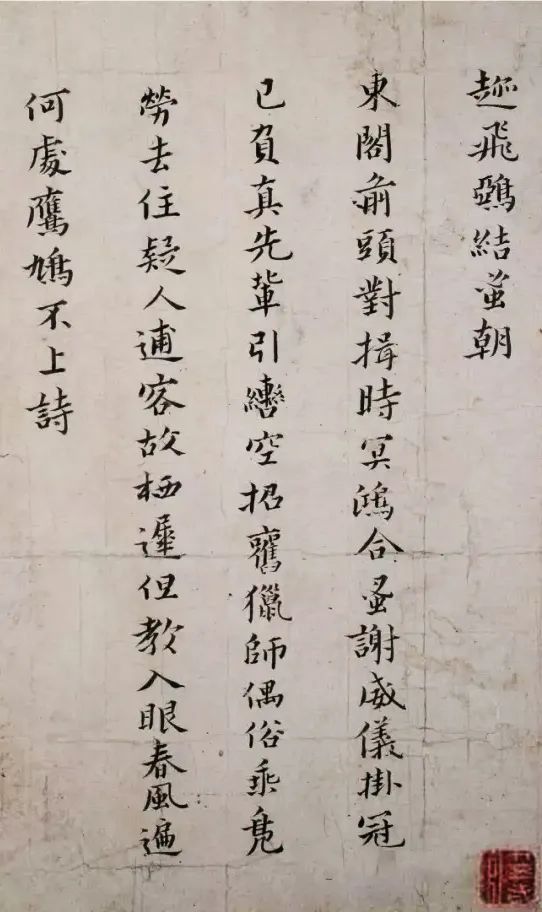 趂飛鵶結蚤朝
東閣前頭對揖時冥鴻合蚤謝威儀掛冠
已負真先輩引轡空招舊獵師偶俗乘鳧
勞去住疑人逋客故栖遲但教入眼春風遍
何處鷹鳩不上詩